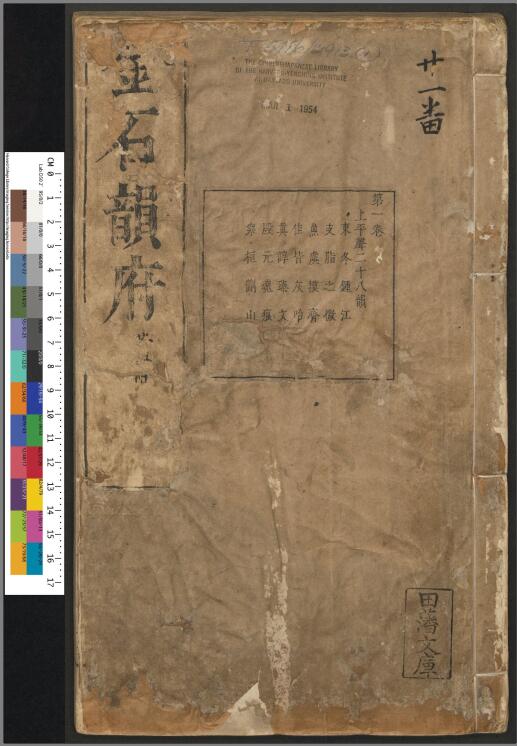 廿一番
THE CHINESE-JAPANESE LIBRARY
OF THE HARVARD-YENCHING INSTITUTE
AT HARVARD UNIVERSITY
MAR 1 1954
第一卷
上平聲二十八韻
東冬鍾江
支脂之微
魚虞摸齊
佳皆灰咍
真諄臻文
元魂痕
寒桓刪山
金石韻府
田藩文庫
CM 0 1 2 3 4 5 6 7 8 9 10 11 12 13 14 15 16 17